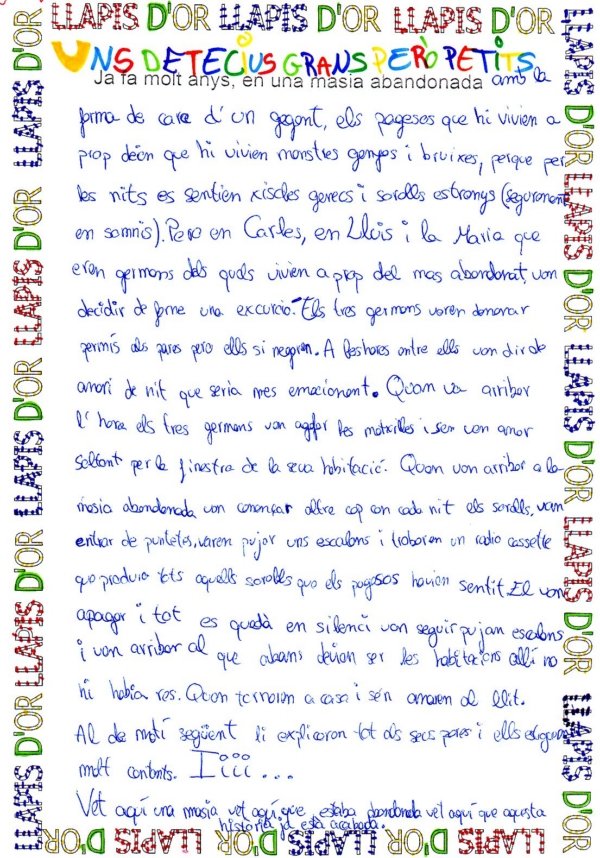 LLAPIS D'OR LLAPIS D'OR LLAPIS D'OR
UNS DETECIUS GRANS PERÒ PETITS
Ja fa molt anys, en una masia abandonada amb la
forma de cara d'un gegant, els pagesos que hi vivien a
prop deien que hi vivien monstres genyos i bruixes, perque per
les nits es sentien xiscles gerecs i sorolls estranys (segurament
en somnis). Pero en Carles, en Lluis i la Maria que
eren germans dels quals vivien a prop del mas abandonat, van
decidir de ferne una excurcio. Els tres germans varen demanar
permís als pares pero ells si negaren. A deshores entre ells van dir de
anari de nit que seria mes emocionant. Quan va arribar
l'hora els tres germans van agafar les motxilles i sen van anar
saltant per la finestra de la seva habitació. Quan van arribar a la
masia abandonada van començar altre cop com cada nit els sorolls, van
entrar de puntetes, varen pujar uns escalons i trobaren un radio cassette
que produia tots aquells sorolls que els pagesos havien sentit. El van
apagar i tot es quedà en silenci van seguir pujan escalons
i van arribar al que abans devian ser les habitacions allí no
hi habia res. Quan tornaren a casa i sén anaren al llit.
Al de matí següent li explicaron tot als seus pares i ells estigueren
molt contents. Iiii...
Vet aquí una masia vet aquí que estaba abandonada vet aquí que aquesta
historia ja està acabada.
LLAPIS D'OR LLAPIS D'OR LLAPIS D'OR LLAPIS D'OR LLAPIS D'OR
LLAPIS D'OR LLAPIS D'OR LLAPIS D'OR LLAPIS D'OR LLAPIS D'OR
D'OR LLAPIS D'OR LLAPIS D'OR LLAPIS